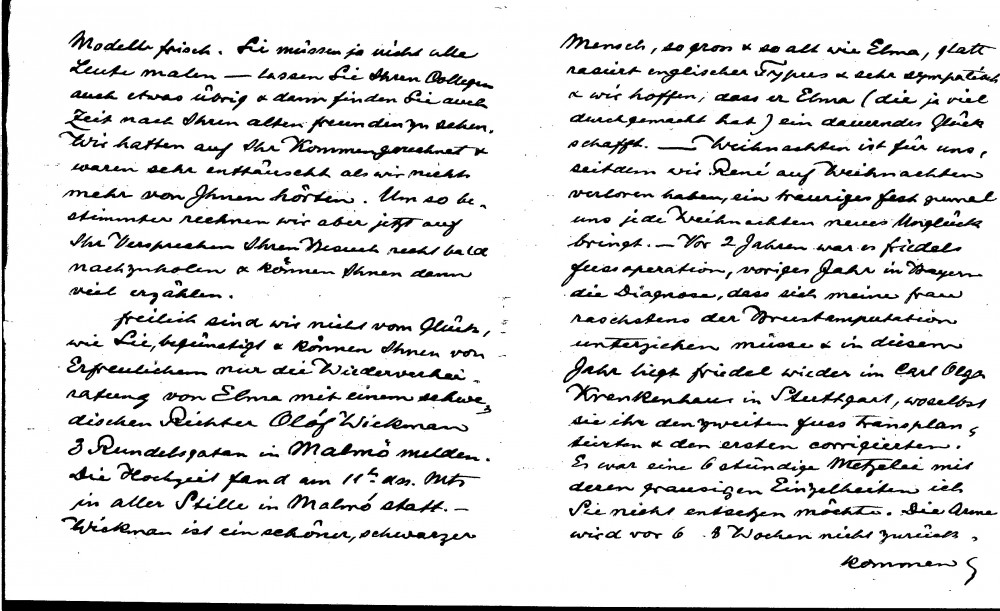 Modelle frisch. Sie müssen ja nicht alle
Leute malen — lassen Sie Ihren Collegen
auch etwas übrig & dann finden Sie auch
Zeit nach Ihren alten freunden zu sehen.
Wir hatten auf Ihr Kommen gerechnet &
waren sehr enttäuscht als wir nichts
mehr von Ihnen hörten. Um so be-
stimmter rechnen wir aber jetzt auf
Ihr Versprechen Ihren Besuch recht bald
nachzuholen & können Ihnen dann
viel erzählen.
freilich sind wir nicht vom Glück,
wie Sie, begünstigt & können Ihnen von
Erfreulichem nur die Wiederverhei-
ratung von Elma mit einem schwe-
dischen Richter Olóf Wickman
3 Rundelsgatan in Malmö melden.
Die Hochzeit fand am 11th ds. Mts
in aller Stille in Malmö statt. —
Wickman ist ein schöner, schwarzer
Mensch, so gross & so alt wie Elma, glatt
rasiert englischer Typus & sehr sympatisch
& wir hoffen, dass er Elma (die ja viel
durchgemacht hat) ein dauerndes Glück
schafft. — Weihnachten ist für uns,
seitdem wir René auf Weihnachten
verloren haben, ein trauriges fest zumal
uns jede Weihnachten neues Unglück
bringt. — Vor 2 Jahren war es friedels
fussoperation, voriges Jahr in Bayern
die Diagnose, dass sich meine frau
raschstens der Brustamputation
unterziehen müsse & in diesem
Jahr liegt friedel wieder im Carl Olga
Krankenhaus in Stuttgart, woselbst
sie ihr den zweiten fuss transplan-
tierten & den ersten corrigierten.
Es war eine 6 stündige Metzelei mit
deren grausigen Einzelheiten ich
Sie nicht entsetzen möchte. Die Arme
wird vor 6 - 8 Wochen nicht zurück-
kommen